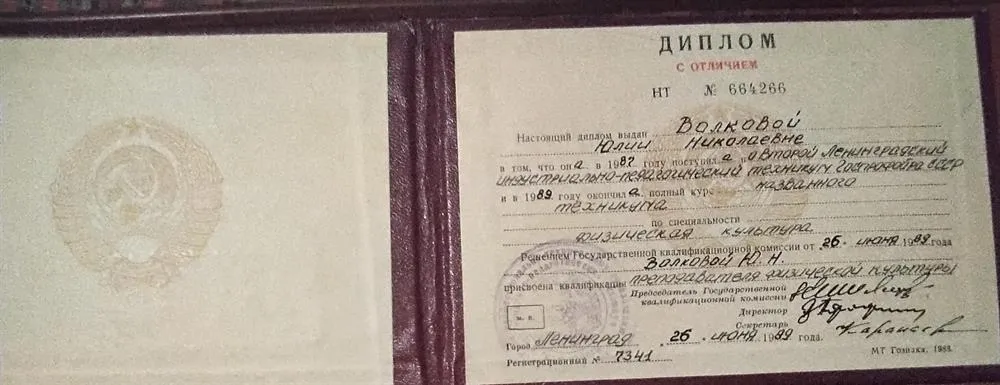 ДИПЛОМ
С ОТЛИЧИЕМ
НТ № 664266
Настоящий диплом выдан Волковой
Юлии Николаевне
в том, что она в 1987 году поступила во Второй Ленинградский
индустриально-педагогический техникум Госпрофобра СССР
и в 1989 году окончила полный курс названного
техникума
по специальности
физическая культура
Решением Государственной квалификационной комиссии от 26 июня 1989 года
Волковой Ю. Н.
присвоена квалификация преподавателя физической культуры
Председатель Государственной
квалификационной комиссии
Директор
М. П.
Секретарь
Город Ленинград 26 июня 1989 года.
Регистрационный № 7341
МТ Гознака. 1988.